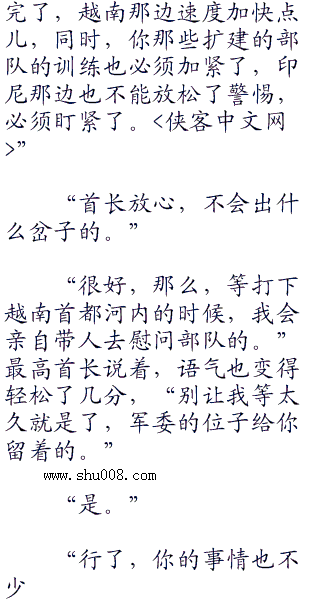 完了，越南那边速度加快点
儿，同时，你那些扩建的部
队的训练也必须加紧了，印
尼那边也不能放松了警惕，
必须盯紧了。<侠客中文网
>”
“首长放心，不会出什
么岔子的。”
“很好，那么，等打下
越南首都河内的时候，我会
亲自带人去慰问部队的。”
最高首长说着，语气也变得
轻松了几分，“别让我等太
久就是了，军委的位子给你
留着的。”
www.shu008.com
“是。”
“行了，你的事情也不
少